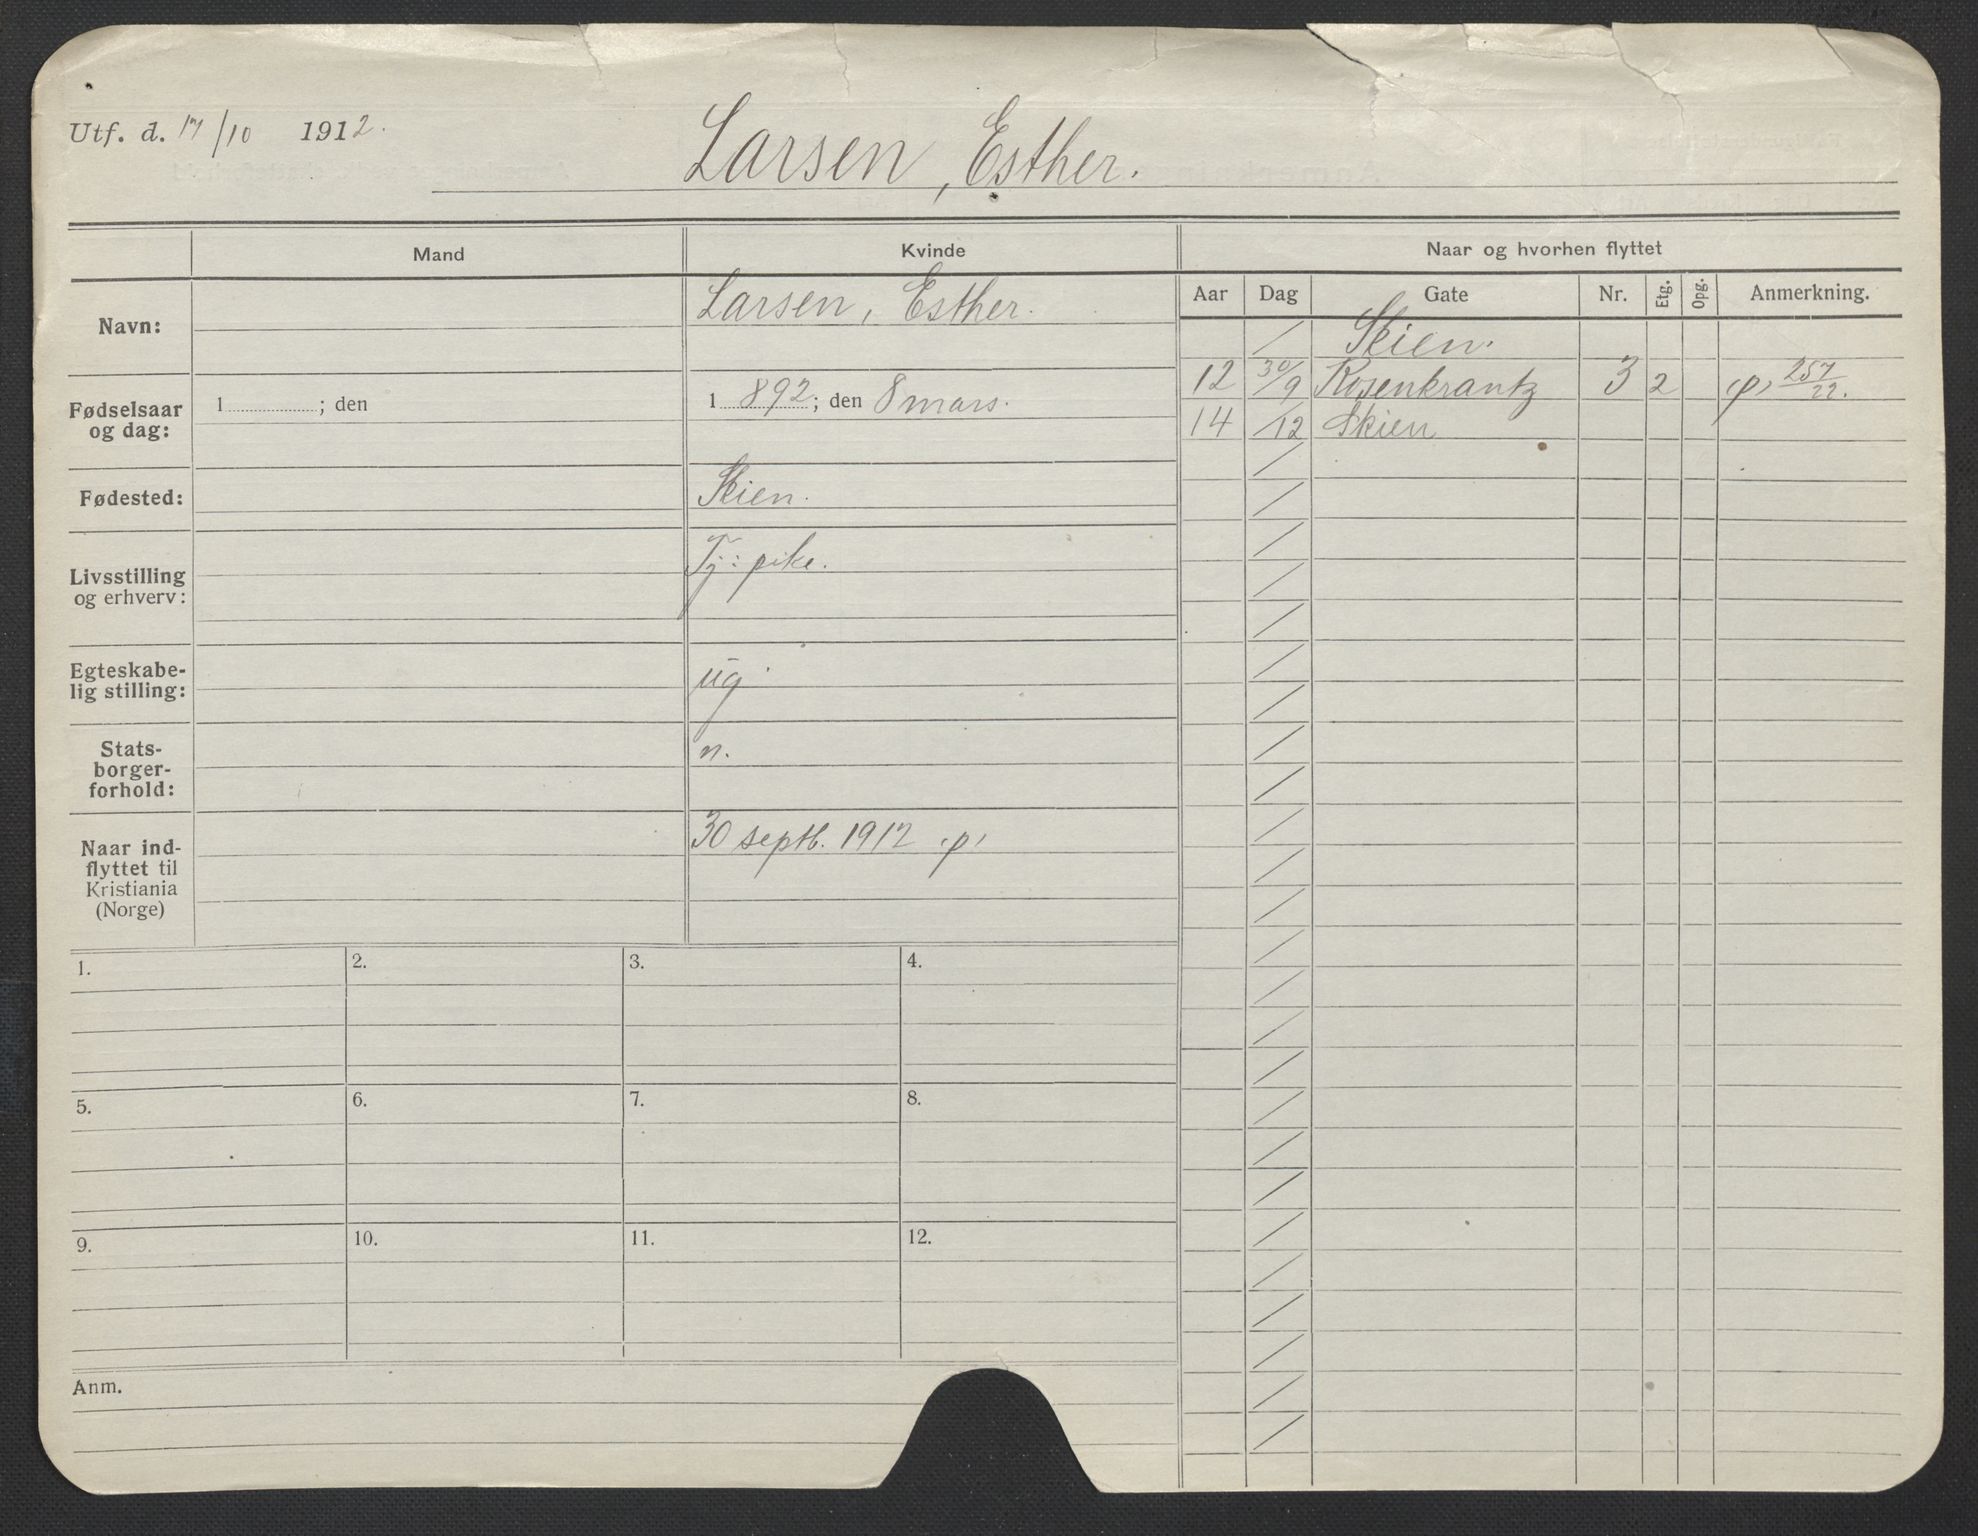 Utf. d. 17/10 1912.
Larsen, Esther.
Mand
Kvinde
Naar og hvorhen flyttet
Aar Dag Gate Nr. Etg. Opg. Anmerkning.
Navn:
Larsen, Esther.
Fødselsaar
og dag:
1 ; den
1892; den 8 mars.
Fødested:
Skien.
Livsstilling
og erhverv:
Tj: pike.
Egteskabe-
lig stilling:
ug.
Stats-
borger-
forhold:
n.
Naar ind-
flyttet til
Kristiania
(Norge)
30 septb. 1912 p
Skien.
12 30/9 Rosenkrantz 3 2 p, 257/22.
14 /12 Skien
1.
2.
3.
4.
5.
6.
7.
8.
9.
10.
11.
12.
Anm.